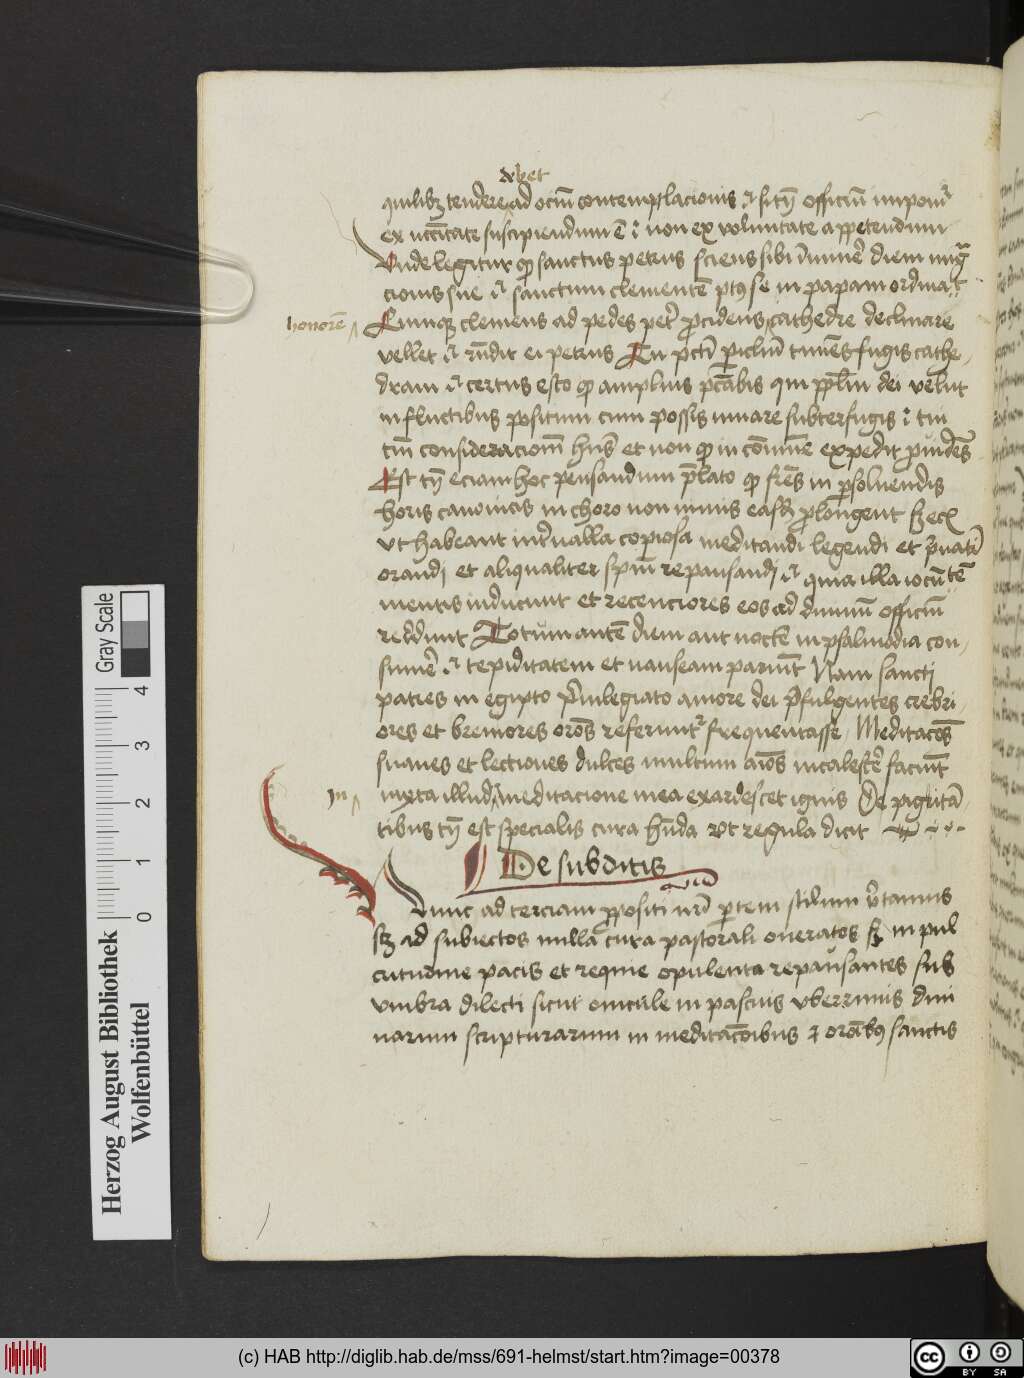 debet
quilibꝫ tendere ad ociū contemplacionis ⁊ si tn̄ officiū imponit᷑
ex necc̄itate suscipiendum ē ⁊ non ex voluntate appetendum
Unde legitur qꝫ sanctus petrus sciens sibi īminē diem migra
cionis sue ⁊ sanctum clementē post se in papam ordinat
honorē
Cumqꝫ clemens ad pedes petri ꝓcidens cathedre declinare
vellet ⁊ rn̄dit ei petrus In pctī ꝑiclm̄ timēs fugis cathe-
dram ⁊ certus esto qꝫ amplius pctābis qui pplm̄ dei velut
in fluctibus positum cum possis iuuare subterfugis ⁊ tui
tm̄ consideracionē hn̄s et non qꝫ in cōmune expedit ꝓuidēs
Est tn̄ eciam hoc pensandum p̄lato qꝫ fr̄es in ꝑsoluendis
horis canonicis in choro non nimis easdē ꝓlongent sꝫ ecꝫ
vt habeant int̄ualla copiosa meditandi legendi et p̄uatī
orandi et aliqualiter spm̄ repausandi ⁊ quia illa iocūtē
mentis inducunt et recenciores eos ad diuinū officiū
reddunt Totum autē diem aut noctē in psalmodia con-
sumē ⁊ tepiditatem et nauseam pariūt Nam sancti
patres in egipto p̄uilegiato amore dei p̄fulgentes crebri-
ores et breuiores orōes referunt᷑ frequentasse Meditacōes
suaues et lectiones dulces multum aīos incalescē faciūt
In
iuxta illud meditacione mea exardescet ignis De pigritā-
tibus tn̄ est specialis cura hn̄da vt regula dicit
De subditis
Nunc ad terciam ꝓpositi nr̄i ꝑtem stilum v̄tamus
sꝫ ad subiectos nulla cura pastorali oneratos sꝫ in pul
critudine pacis et requie opulenta repausantes sub
vmbra dilecti sicut ouicule in pascuis vberrimis diui
narum scripturarum in meditacōibus ⁊ orōibꝫ sanctis
Gray Scale
4
3
2
1
0
Herzog August Bibliothek
Wolfenbüttel
(c) HAB http://diglib.hab.de/mss/691-helmst/start.htm?image=00378
cc
BY SA